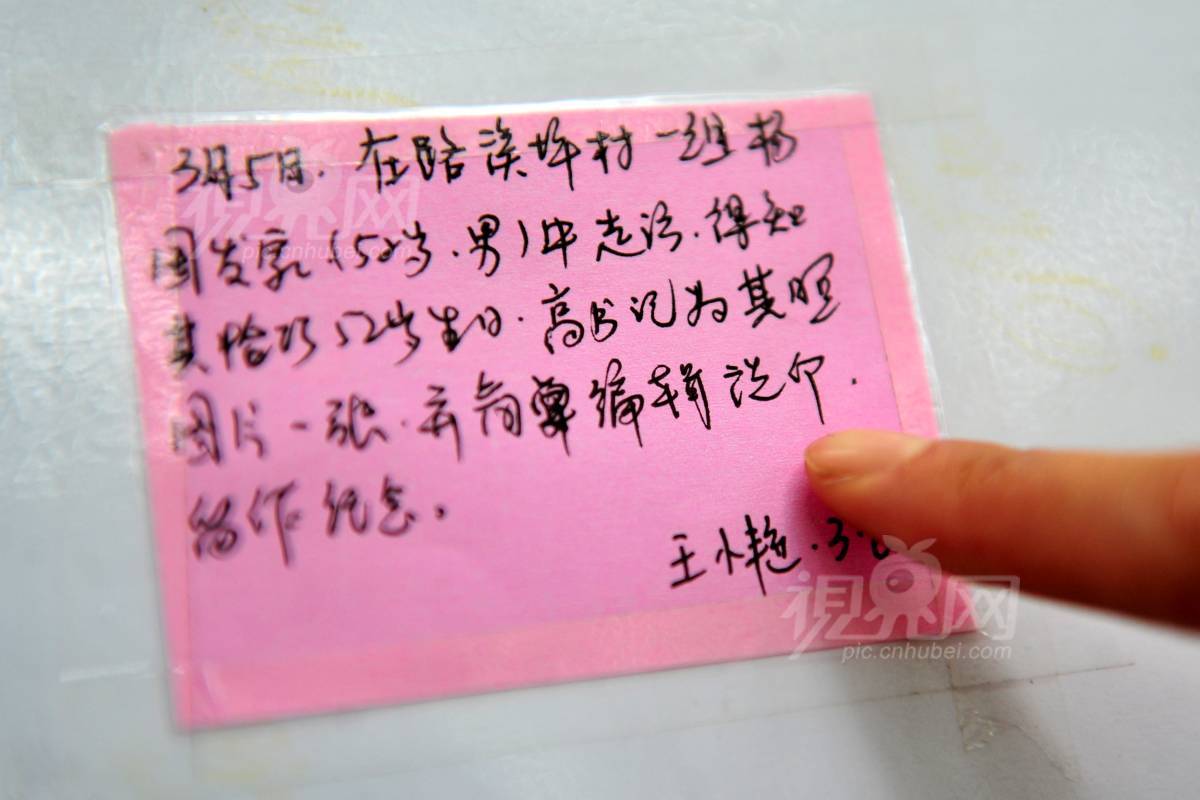 3月5日. 在路溪坪村一组杨
国发家(52岁.男)中走访.得知
其恰巧52岁生日.高书记为其照
图片一张.并简单编辑洗印.
留作纪念.
王小艳.3.
視界网
pic.cnhubei.com
視界网
pic.cnhubei.com